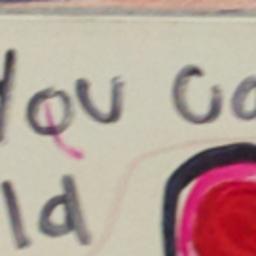 You co
ld